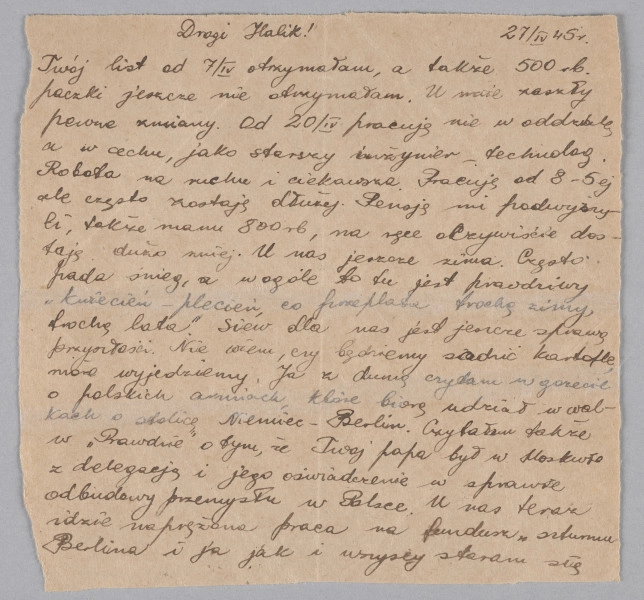 Drogi Halik! 27/IV 45 r.
Twój list od 7/IV otrzymałam, a także 500 rb.
paczki jeszcze nie otrzymałam. U mnie zaszły
pewne zmiany. Od 20/IV pracuję nie w oddziale
a w cechu, jako starszy inżynier-technolog.
Robota na ruchu i ciekawsza. Pracuję od 8-5ej
ale często zostaję dłużej. Pensję mi podwyższy-
li, także mam 800 rb, na ręce oczywiście dos-
taję dużo mniej. U nas jeszcze zima. Często
pada śnieg, a w ogóle to tu jest prawdziwy
„kwiecień-plecień, co przeplata trochę zimy,
trochę lata". Siew dla nas jest jeszcze sprawą
przyszłości. Nie wiem, czy będziemy sadzić kartofle,
może wyjedziemy. Ja z dumą czytam w gazecie
o polskich armiach, które biorą udział w wal-
kach o stolicę Niemiec-Berlin. Czytałam także
w „Prawdzie" o tym, że Twój papa był w Moskwie
z delegacją i jego oświadczenie w sprawie
odbudowy przemysłu w Polsce. U nas teraz
idzie naprężona praca na fundusz „szturmu
Berlina i ja jak i wszyscy staram się